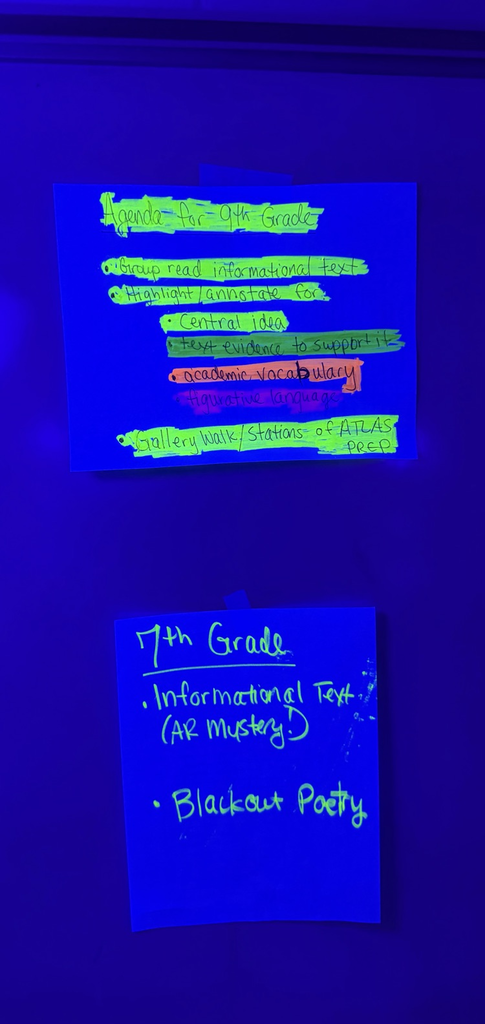 Agenda for 9th Grade
• Group read informational text
• Highlight/annotate for
• Central idea
• text evidence to support it
• academic vocabulary
• figurative language
• Gallery Walk/Stations of ATLAS
PREP
7th Grade
• Informational Text
(AR Mystery!)
• Blackout Poetry